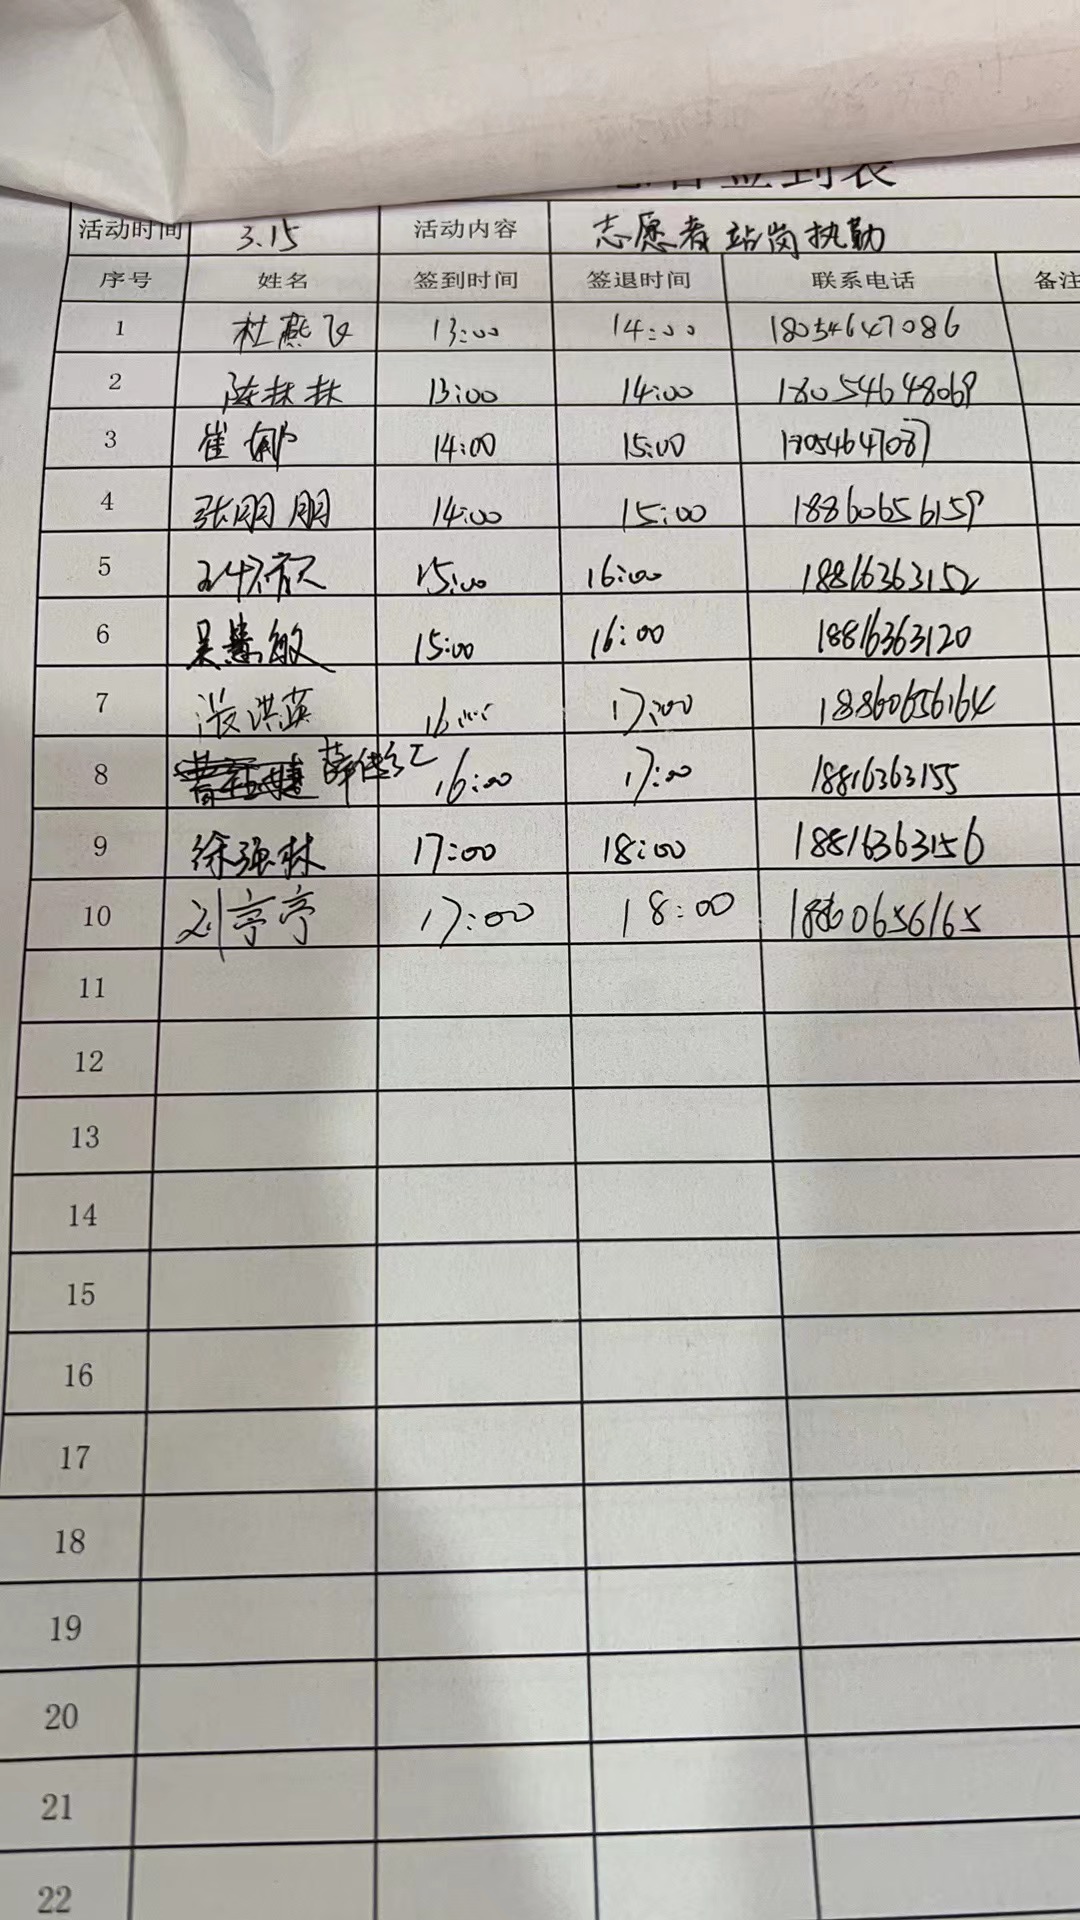 签到表
活动时间 3.15 活动内容 志愿者站岗执勤
序号 姓名 签到时间 签退时间 联系电话 备注
1 杜燕飞 13:00 14:00 18054647086
2 陈扶扶 13:00 14:00 18054648069
3 崔娜 14:00 15:00 18054647087
4 张朋朋 14:00 15:00 18860656159
5 15:00 16:00 18816363152
6 吴慧敏 15:00 16:00 18816363120
7 段洪英 16:00 17:00 18860656164
8 薛佳汇 16:00 17:00 18816363155
9 徐强林 17:00 18:00 18816363156
10 刘亭亭 17:00 18:00 18860656165
11
12
13
14
15
16
17
18
19
20
21
22